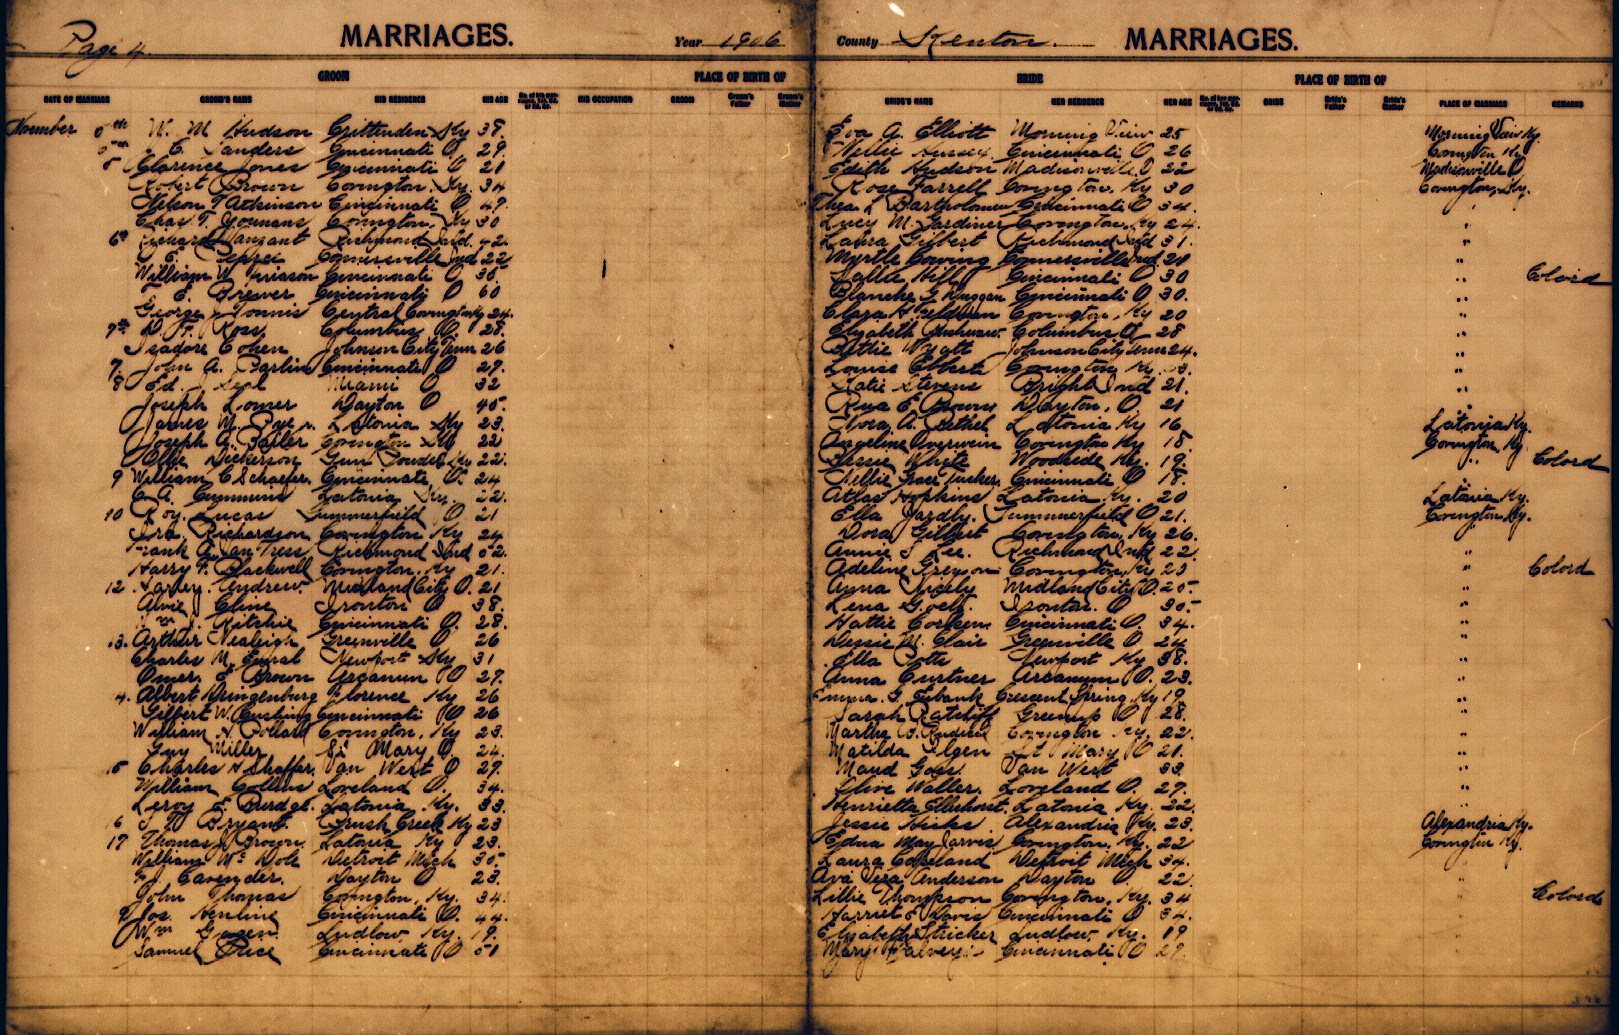 Page 4. MARRIAGES. Year 1906 County Kenton. MARRIAGES.
GROOM PLACE OF BIRTH OF BRIDE PLACE OF BIRTH OF
DATE OF MARRIAGE GROOM'S NAME HIS RESIDENCE HIS AGE HIS OCCUPATION GROOM Groom's Father Groom's Mother BRIDE'S NAME HER RESIDENCE HER AGE BRIDE Bride's Father Bride's Mother PLACE OF MARRIAGE REMARKS
5th W. M. Hudson Crittenden Ky 38. Eva A. Elliott Morning View 25 Morning View Ky.
E. Sanders Cincinnati O 29. Nellie Cincinnati O 26 Covington Ky
5 Clarence Jones Cincinnati O 21 Edith Hudson Madisonville O 22 Madisonville O.
Robert Brown Covington, Ky. 34 Rose Farrell Covington, Ky 30 Covington, Ky.
Nelson T Atkinson Cincinnati O 49. L Bartholomew Cincinnati O 34. "
Chas T. Youmans Covington, Ky 30 Lucy M. Gardiner Covington, Ky 24. "
6th Richard Richmond Ind. 42. Laura Gilbert Richmond Ind 31. "
Connersville Ind 22 Myrtle Connersville Ind 21 "
William W. Cincinnati O 35. Sallie Hill Cincinnati O 30 " Colord
E. Brewer Cincinnati O 60 Blanche G. Duggan Cincinnati O 30. "
George Central Covington Ky 24. Clara Covington, Ky 20 "
7th Ross Columbus O. 28. Elizabeth Columbus O 28 "
Isadore Cohen Johnson City Tenn 26 Bettie Wyatt Johnson City Tenn 24. "
7. John A. Cincinnati O 29. Louise Covington Ky "
8 Ed. J Seal Miami O 32 Katie Stevens Bright Ind 21. "
Joseph Lomer Dayton O 45. E. Brown Dayton, O. 21 "
James M. Latonia Ky 23. Flora A. Bethel Latonia Ky 16 Latonia Ky.
Joseph G. Covington Ky 22 Angeline Overwein Covington Ky 18. Covington Ky.
Ollie Dickerson Gun Powder Ky 22. White Woodside Ky. 19. " Colord
9 William C Schaefer. Cincinnati O 24 Nellie Grace Tucker. Cincinnati O 18.
A. Cummins Latonia Ky. 22. Atlas Hopkins Latonia Ky. 20 Latonia Ky.
10 Roy Lucas Summerfield O 21 Ella Yardly. Summerfield O 21. Covington Ky.
Ira Richardson Covington Ky 24 Dora Gilbert Covington, Ky 26.
Frank A. Van Ness Richmond Ind 52. Annie J Lee. Richmond Ind 22 "
Harry F. Blackwell Covington, Ky 21. Adeline Covington, Ky 23 " Colord
12 Harley Andrew Midland City O. 21 Anna Midland City O. 25. "
Alvie J Cline Ironton O 38. Lena Ironton. O 35. "
Wm J. Ritchie Cincinnati O. 28. Hattie Cincinnati O. 34. "
13. Arthur Greenville O 26 Dessie M. Clair Greenville O 24 "
Charles M. Newport Ky 31 Ella Potts Newport Ky 38. "
Omer. E Brown Arcanum O 27. Anna Curtner Arcanum O. 23. "
4. Albert Florence Ky 26 Emma G. Eubank Crescent Spring Ky 19. "
Gilbert W. Cushing Cincinnati O 26 Sarah Ratcliff Greenup O 28. "
William A. Pollard Covington, Ky 23. Martha Covington Ky. 22. "
Guy Miller St Mary O. 24. Matilda Ilgen St Mary O 21. "
15 Charles H Shaffer. Van Wert O 29. Maud Goss. Van Wert 33. "
William Collins Loveland O. 34. Olive Waller. Loveland O. 27. "
Leroy E. Burdge. Latonia Ky. 33. Henrietta Ellerhorst. Latonia Ky. 22. "
16 Bryant. Brush Creek Ky 23 Jessie Hicks Alexandria Ky. 23. Alexandria Ky.
17 Thomas J Brown. Latonia Ky 23. Edna May Jarvis Covington, Ky. 22 Covington Ky.
William Wc Dole Detroit Mich 35. Laura Copeland Detroit Mich 34. "
Cavender. Dayton O 23. Ava Vera Anderson Dayton O 22 "
John Thomas Covington, Ky. 34. Lillie Thompson Covington, Ky. 34 " Colord
Jos. Henline Cincinnati O. 44. Harriet E Davis Cincinnati O 34. "
Wm Ludlow, Ky. 19. Elizabeth Stricker Ludlow, Ky. 19 "
Samuel Price Cincinnati O 51 Mary Cincinnati O 29. "